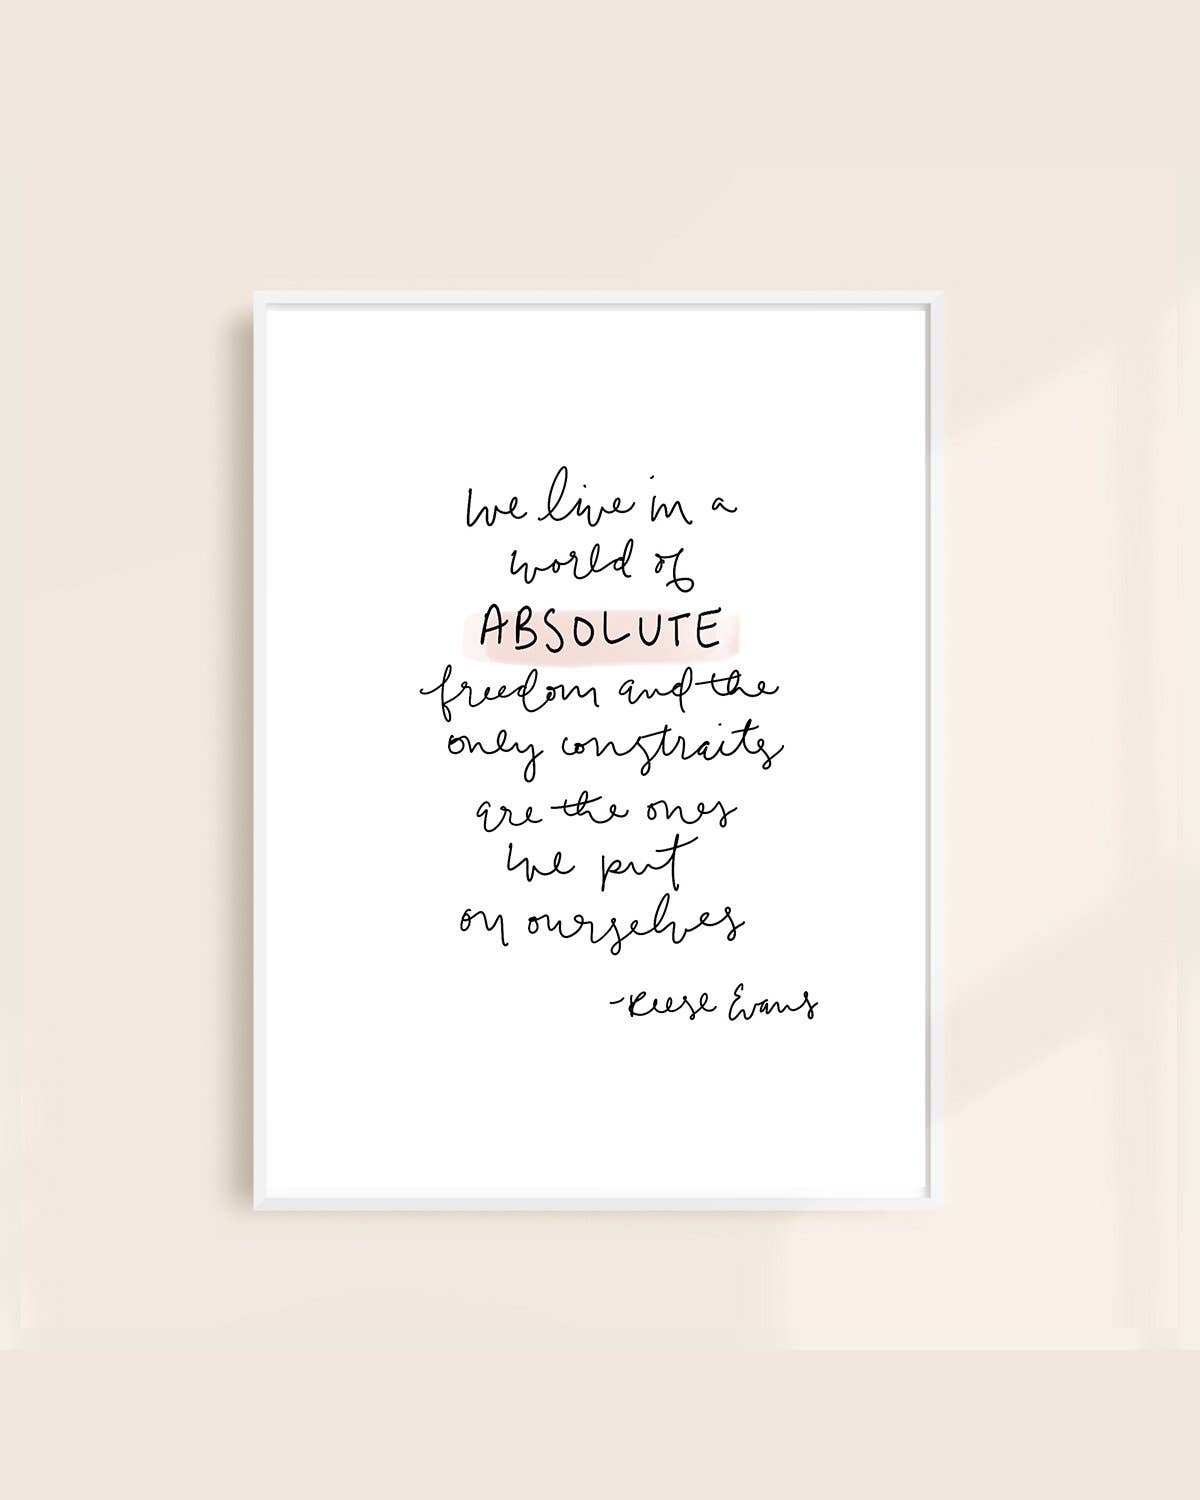 We live in a
world of
ABSOLUTE
freedom and the
only constraits
are the ones
we put
on ourselves
-Reese Evans